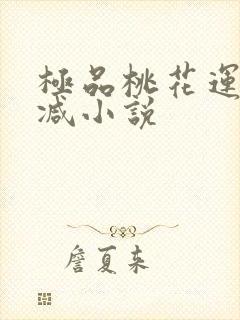 極品桃花運
減小說
詹夏来